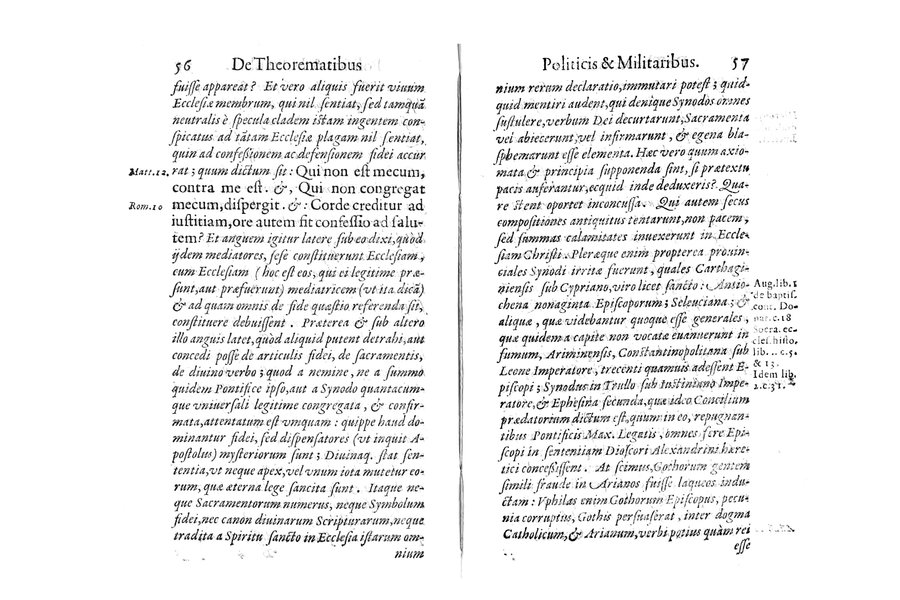 56 De Theorematibus
fuisse appareat? Et vero aliquis fuerit viuum
Ecclesiæ membrum, qui nil sentiat, sed tamquã
neutralis è specula cladem istam ingentem con-
spicatus ad tãtam Ecclesiæ plagam nil sentiat,
quin ad confessionem ac defensionem fidei accur
Matt. 12. rat; quum dictum sit: Qui non est mecum,
contra me est. &, Qui non congregat
Rom. 10 mecum, dispergit. &: Corde creditur ad
iustitiam, ore autem fit confessio ad salu-
tem? Et anguem igitur latere sub eo dixi, quòd
ijdem mediatores, sese constituerunt Ecclesiam,
cum Ecclesiam (hoc est eos, qui ei legitime præ-
sunt, aut præfuerunt) mediatricem (vt ita dicã)
& ad quam omnis de fide quæstio referenda sit,
constituere debuissent. Præterea & sub altero
illo anguis latet, quòd aliquid putent detrahi, aut
concedi posse de articulis fidei, de sacramentis,
de diuino verbo; quod a nemine, ne a summo
quidem Pontifice ipso, aut a Synodo quantacum-
que vniuersali legitime congregata, & confir-
mata, attentatum est vmquam: quippe haud do-
minantur fidei, sed dispensatores (vt inquit A-
postolus) mysteriorum sunt; Diuinaq. stat sen-
tentia, vt neque apex, vel vnum iota mutetur eo-
rum, quæ æterna lege sancita sunt. Itaque ne-
que Sacramentorum numerus, neque Symbolum
fidei, nec canon diuinarum Scripturarum, neque
tradita a Spiritu sancto in Ecclesia istarum om-
nium
Politicis & Militaribus. 57
nium rerum declaratio, immutari potest; quid-
quid mentiri audent, qui denique Synodos omnes
sustulere, verbum Dei decurtarunt, Sacramenta
vel abiecerunt, vel infirmarunt, & egena bla-
sphemarunt esse elementa. Hæc vero quum axio-
mata & principia supponenda sint, si prætextu
pacis auferantur, ecquid inde deduxeris? Qua-
re stent oportet inconcussa. Qui autem secus
compositiones antiquitus tentarunt, non pacem,
sed summas calamitates inuexerunt in Eccle-
siam Christi. Pleræque enim propterea prouin-
ciales Synodi irritæ fuerunt, quales Carthagi-
niensis sub Cypriano, viro licet sancto: Antio-
chena nonaginta Episcoporum; Seleuciana; &
aliquæ, quæ videbantur quoque esse generales,
quæ quidem a capite non vocatæ euanuerunt in
fumum, Ariminensis, Constantinopolitana sub
Leone Imperatore, trecenti quamuis adessent E-
piscopi; Synodus in Trullo sub Iustiniano Impe-
ratore, & Ephesina secunda, quæ ideo Concilium
prædatorium dictum est, quum in eo, repugnan-
tibus Pontificis Max. Legatis, omnes fere Epi-
scopi in sententiam Dioscori Alexandrini hære-
tici concessissent. At scimus, Gothorum gentem
simili fraude in Arianos fuisse laqueos indu-
ctam: Vphilas enim Gothorum Episcopus, pecu-
nia corruptus, Gothis persuaserat, inter dogma
Catholicum, & Arianum, verbi potius quàm rei
esse
Aug. lib. 1
de baptis.
cont. Do-
nat. c. 18
Socra. ec-
cles. histo.
lib. c. 5.
& 13.
Idem lib.
2. c. 31.